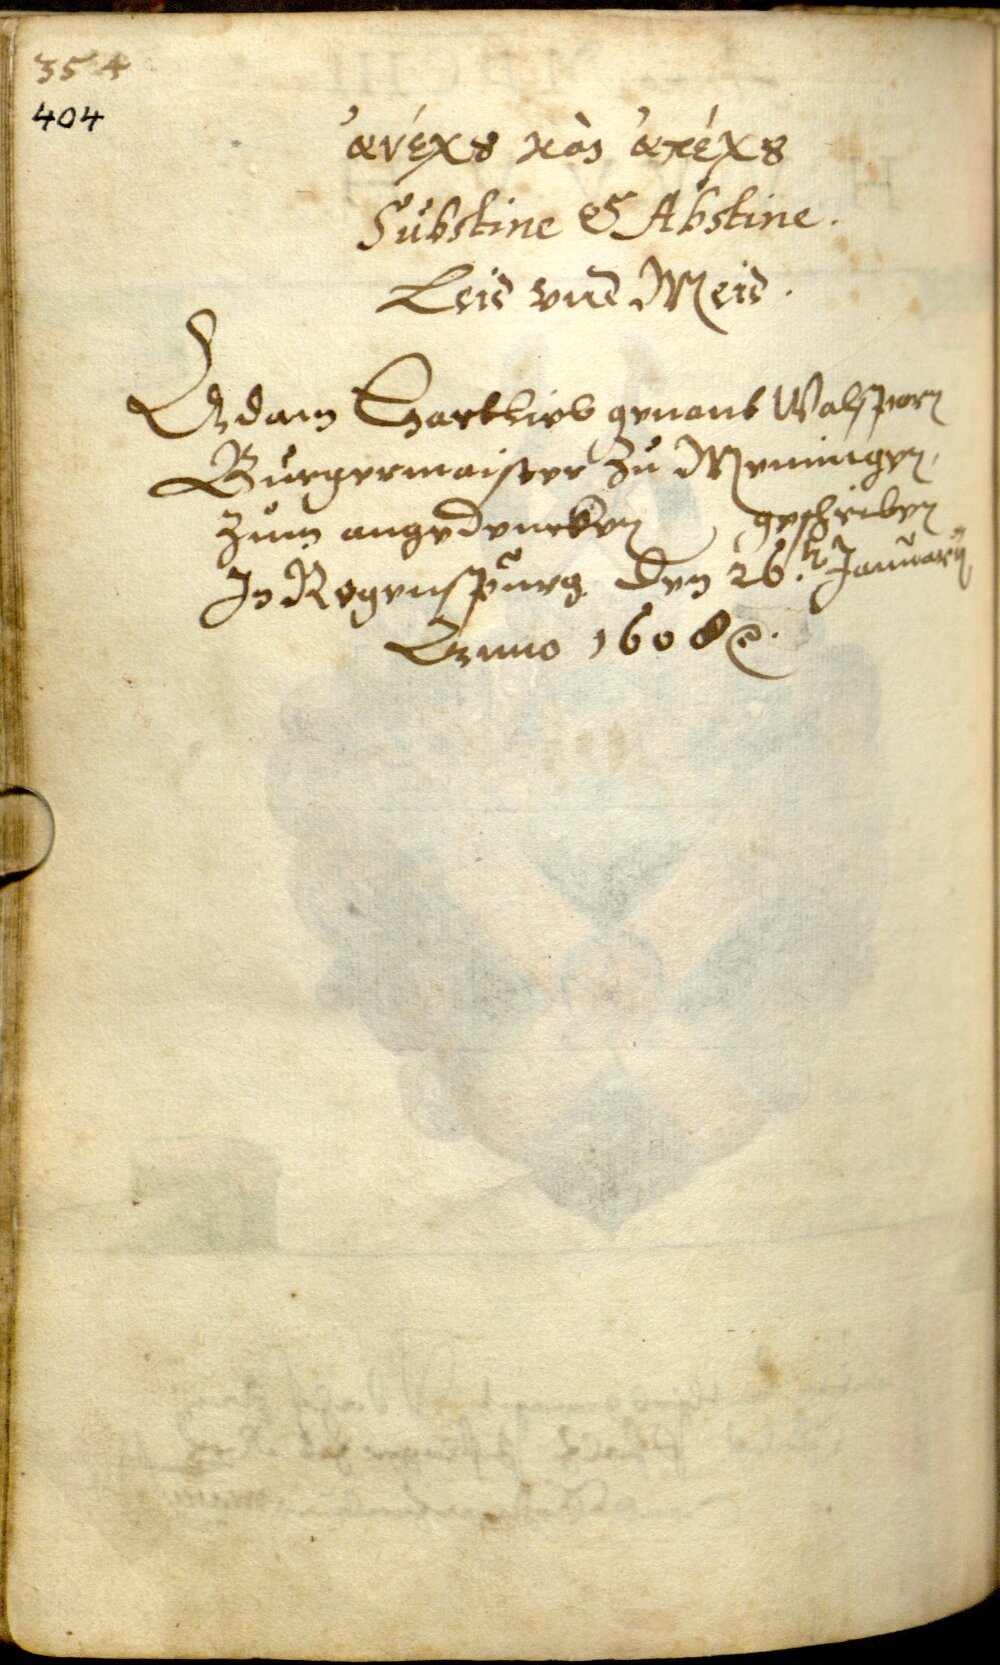 354
404
ἀνέχȣ καὶ ἀπέχȣ
Sŭbstine & Abstine.
Leid vnd Meid.
Adam Hartlieb genant Walsporn
Bŭrgermaister Zŭ Memingen,
Zŭm angedencken geschriben
In Regenspŭrg den 26. Januarij
Anno 1608